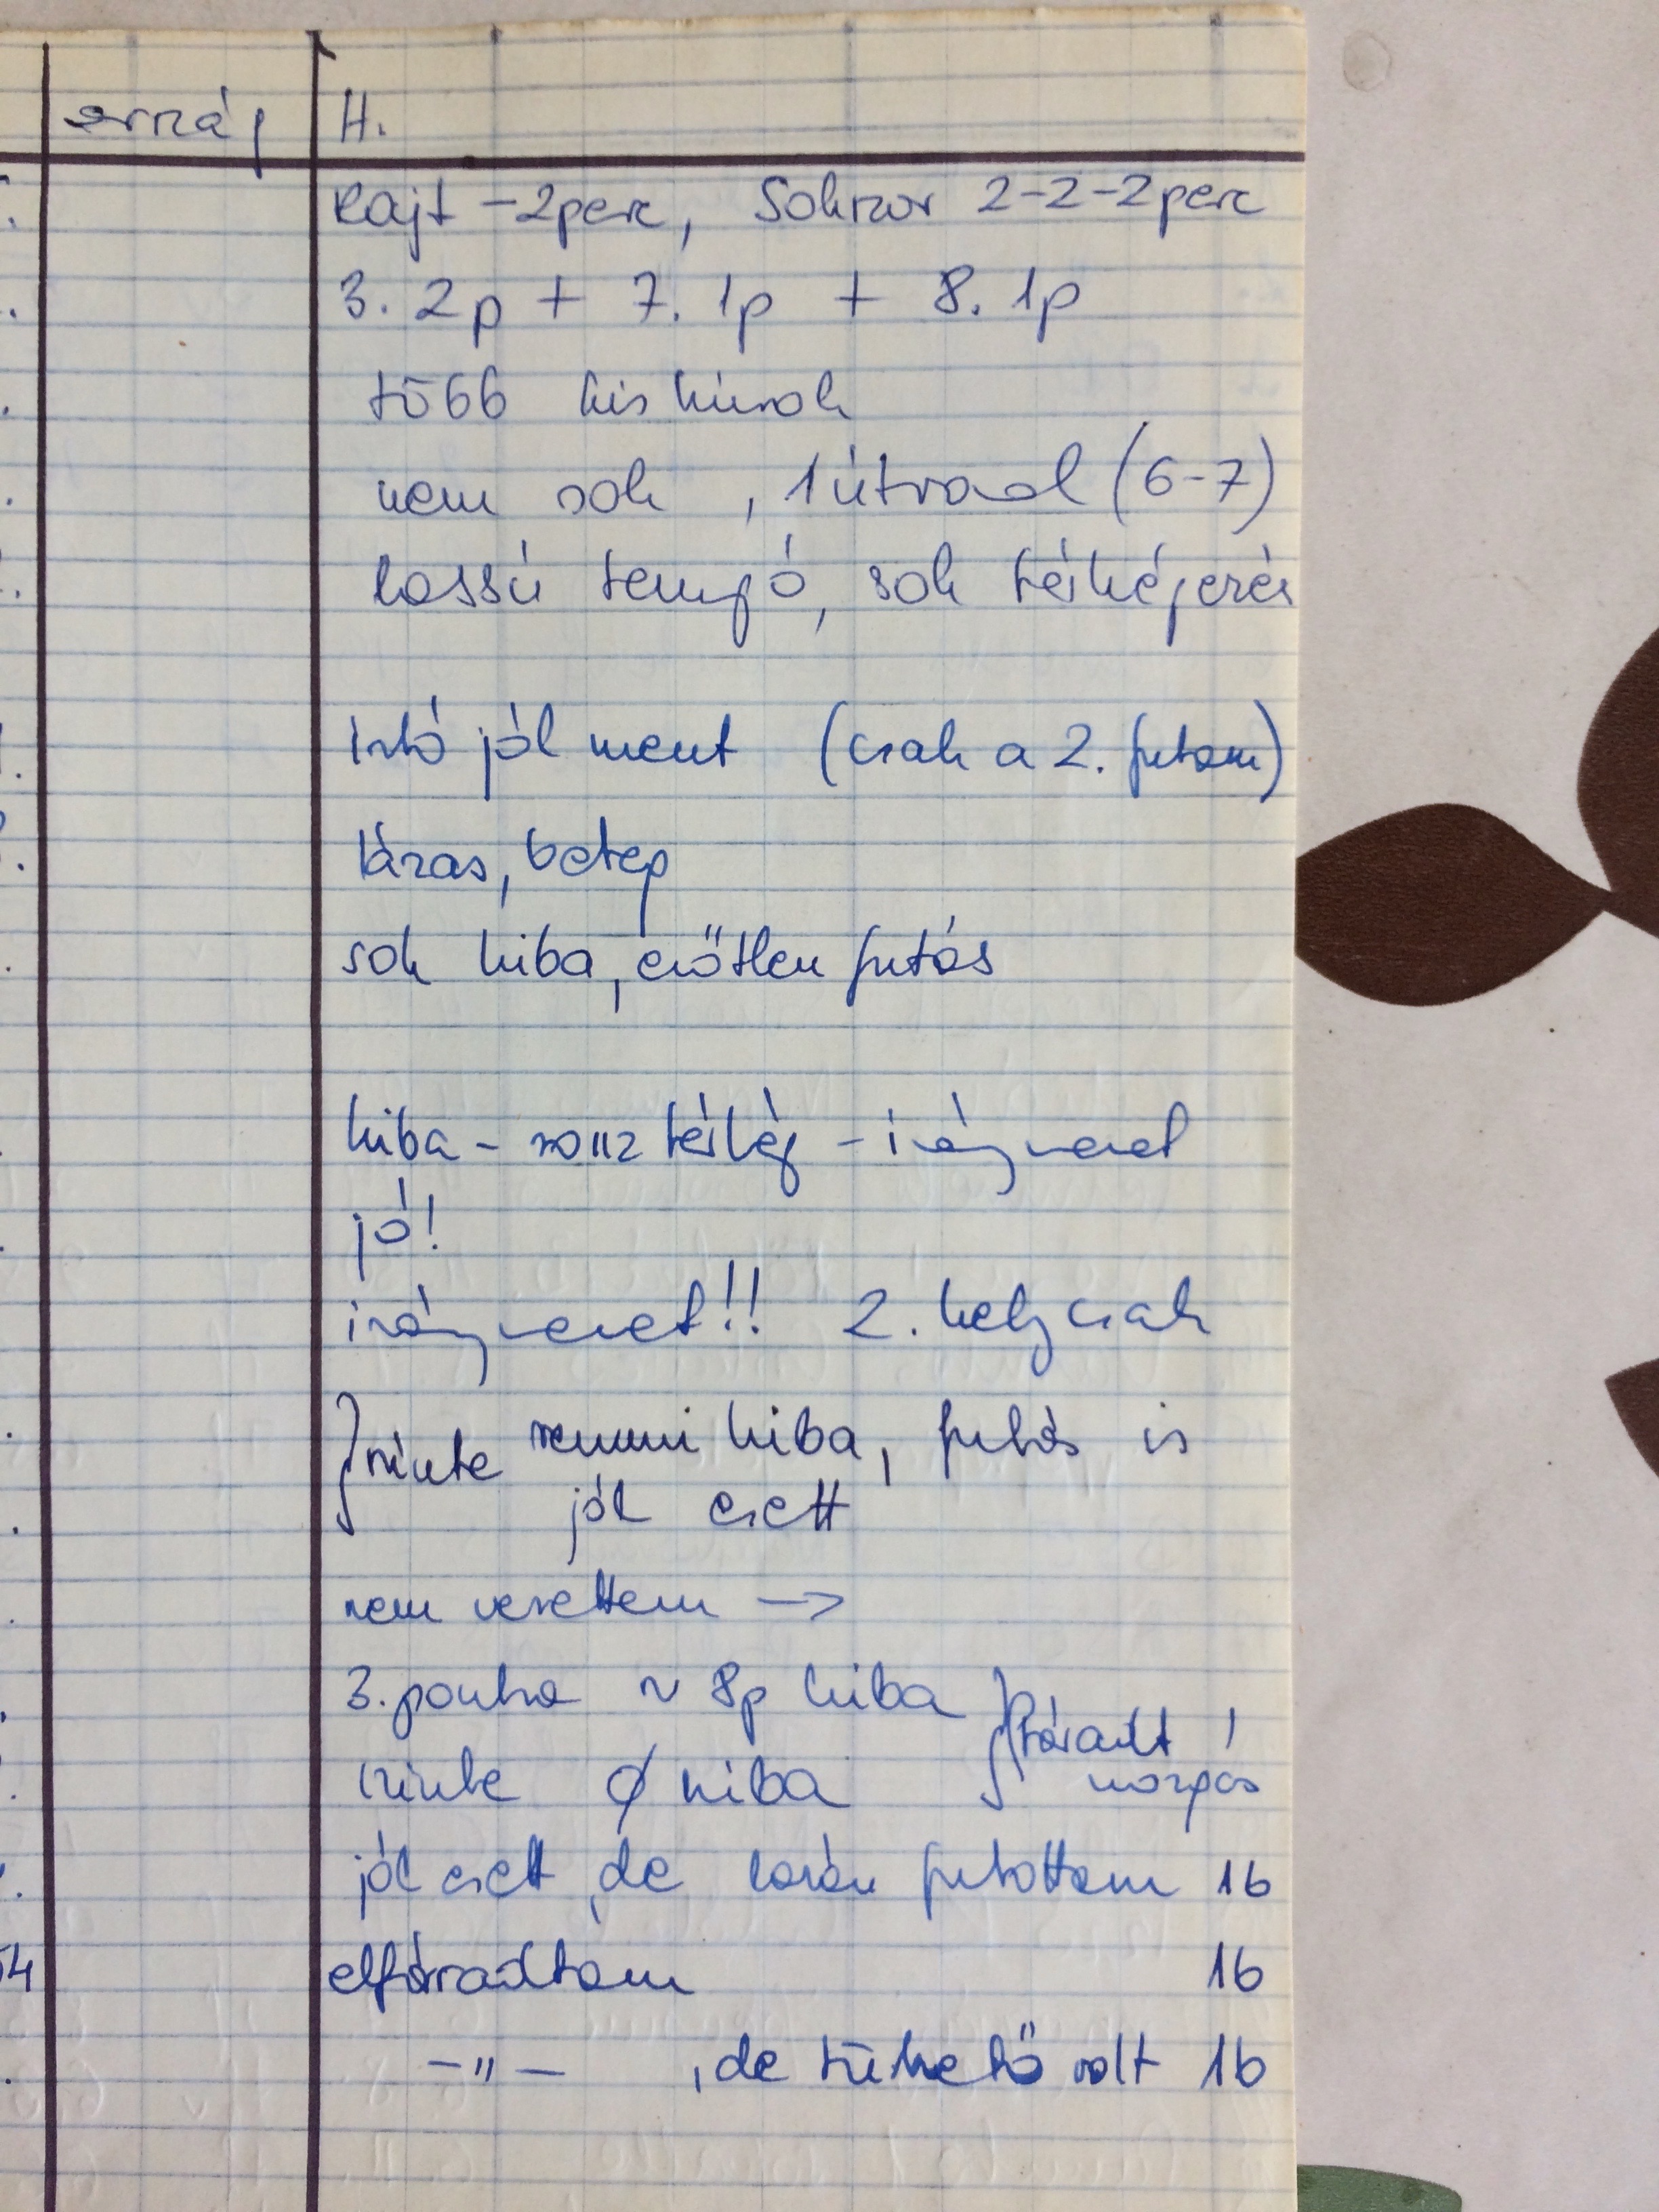 ország H.
Rajt -2perc, Sokszor 2-2-2perc
3. 2p + 7. 1p + 8. 1p
több kis hiba
nem sok , 1 útvonal (6-7)
lassú tempó, sok térképezés
Irtó jól ment (csak a 2. futam)
lázas, beteg
sok hiba, erőtlen futás
hiba - rossz térkép - irányvenet
jó!
irányvenet!! 2. hely csak
szinte semmi hiba, futás is
jól esett
nem vezettem →
3. pontra ~ 8p hiba
fáradt !
szinte ∅ hiba mozgás
jól esett, de lazán futottam 16
54 elfáradtam 16
-"- , de tűrhető volt 16